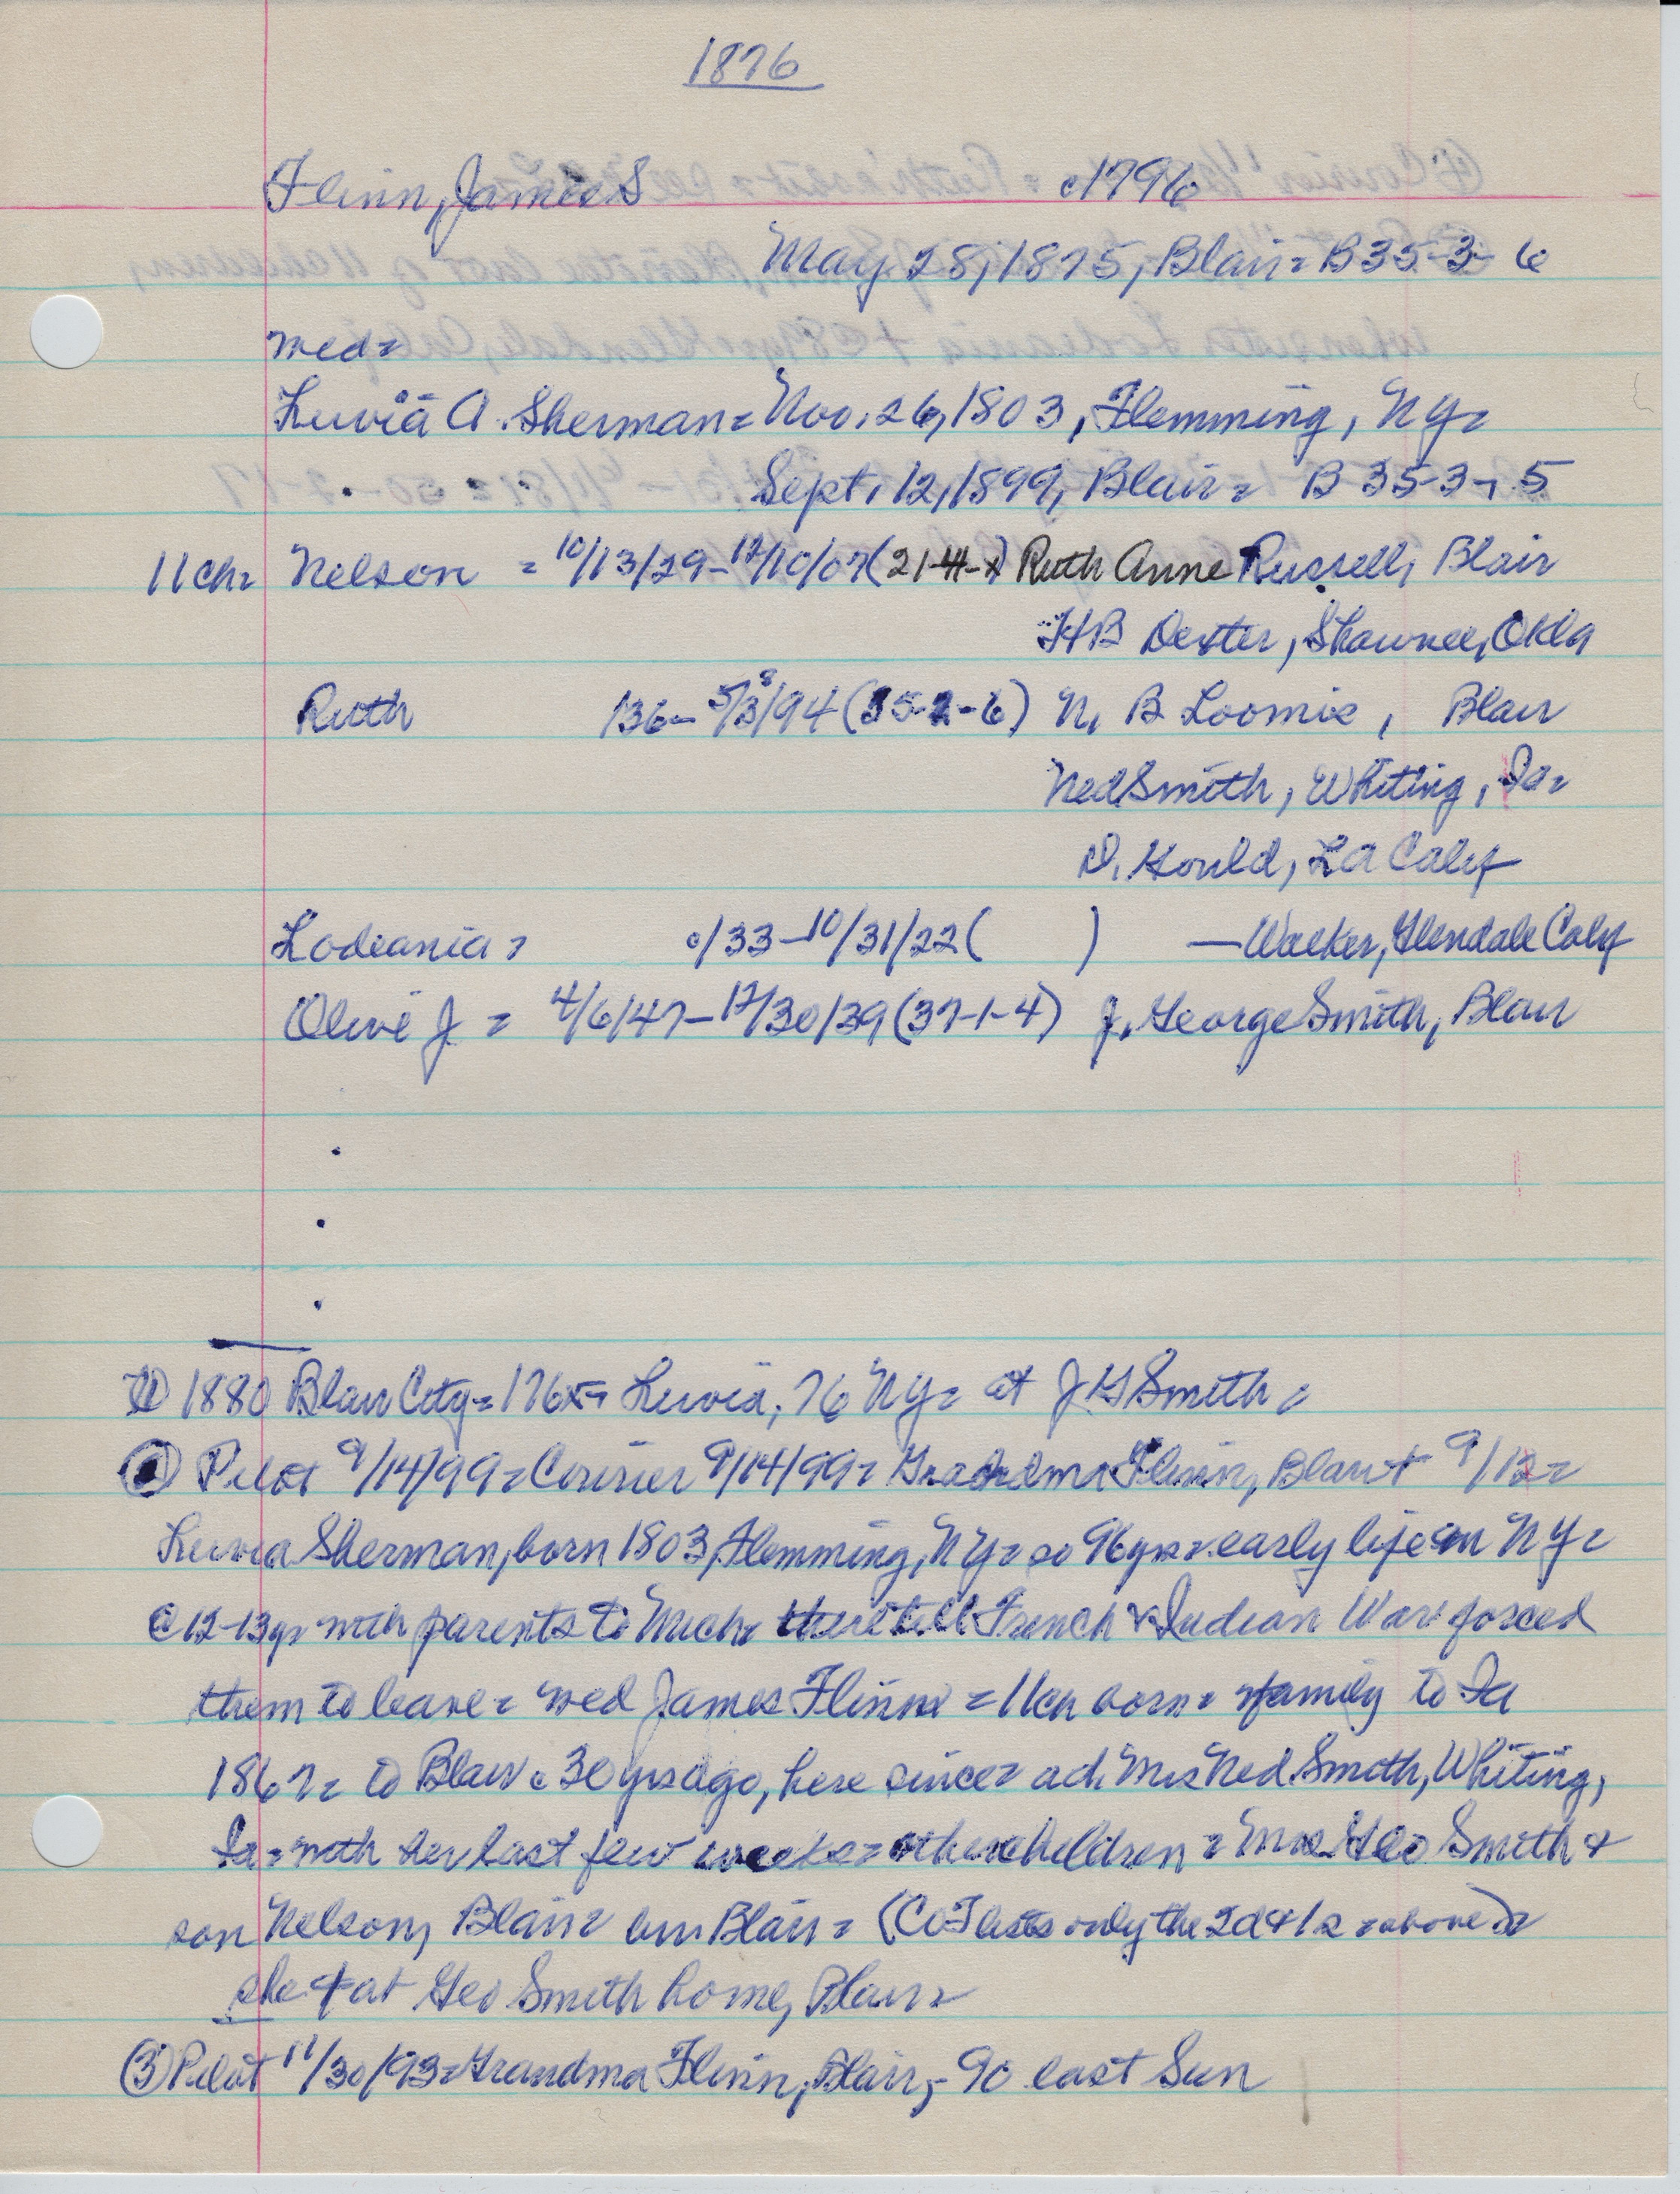 1876
Flinn, James S c1796
May 28, 1875, Blair = B35-3-6
wed =
Luvia A. Sherman = Nov. 26, 1803, Flemming, NY =
Sept. 12, 1899, Blair = B 35-3-5
11ch = Nelson = 10/13/29-12/10/07 (21-4-x) Ruth Anne Russell, Blair
HB Dexter, Shawnee, Okla
Ruth /36- 5/3/94 (35-2-6) N. B Loomis, Blair
Ned Smith, Whiting, Ia =
D. Gould, LA Calif
Lodeania = c/33-10/31/22 ( ) — Walker, Glendale Calif
Olive J = 4/6/47-12/30/39 (37-1-4) J. George Smith, Blair
① 1880 Blair City = 176x = Luvia, 76 NY = at J G Smith =
② Pilot 9/14/99 = Courier 9/14/99 = Grandma Flinn, Blair + 9/12 =
Luvia Sherman, born 1803, Flemming, NY = so 96yrs = early life in NY =
@ 12-13yr with parents to Mich = there till French & Indian War forced
them to leave = wed James Flinn = 11ch born = family to Ia
1867 = to Blair c 30 yrs ago, here since = ad. Mrs Ned Smith, Whiting,
Ia = with her last few weeks = other children = Mrs Geo Smith &
son Nelson, Blair = bur Blair = (Co F lists only the 2d & 1s = above) =
she + at Geo Smith home, Blair =
③ Pilot 11/30/93 = Grandma Flinn, Blair, - 90 last Sun